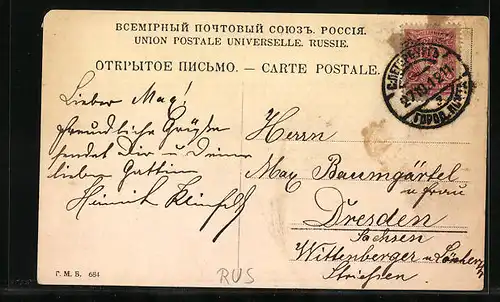 ВСЕМІРНЫЙ ПОЧТОВЫЙ СОЮЗЪ. РОССІЯ.
UNION POSTALE UNIVERSELLE. RUSSIE.
ОТКРЫТОЕ ПИСЬМО. — CARTE POSTALE.
Lieber Max!
Freundliche Grüße
sendet Dir u Deiner
lieben Gattin
Heinrich
Herrn
Max Baumgärtel
u Frau
Dresden
Sachsen
Wittenberger u
Striesen
Г. М. Б. 684
RUS